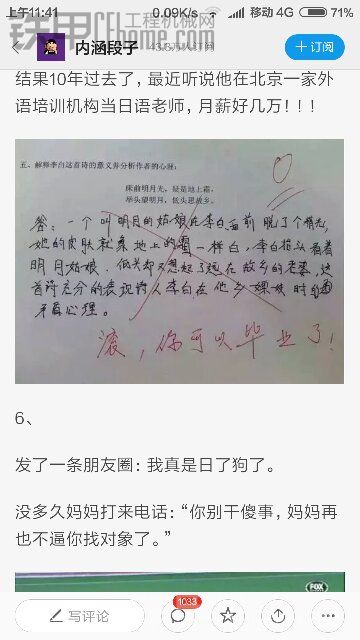 上午11:41
0.09K/s
移动 4G
71%
铁甲工程机械网
CEHOME.COM
内涵段子
43.8万人订阅
+订阅
结果10年过去了，最近听说他在北京一家外
语培训机构当日语老师，月薪好几万！！！
五、解释李白这首诗的意义并分析作者的心理：
床前明月光，疑是地上霜。
举头望明月，低头思故乡。
0
答：一个叫明月的姑娘在李白面前脱了个精光，
她的皮肤就象地上的霜一样白，李白抬头看着
明月姑娘，低头却又想起了远在故乡的老婆，这
首诗充分的表现诗人李白在他乡嫖妓时的
矛盾心理。
滚，你可以毕业了！
6、
发了一条朋友圈：我真是日了狗了。
没多久妈妈打来电话：“你别干傻事，妈妈再
也不逼你找对象了。”
FOX
写评论
1033